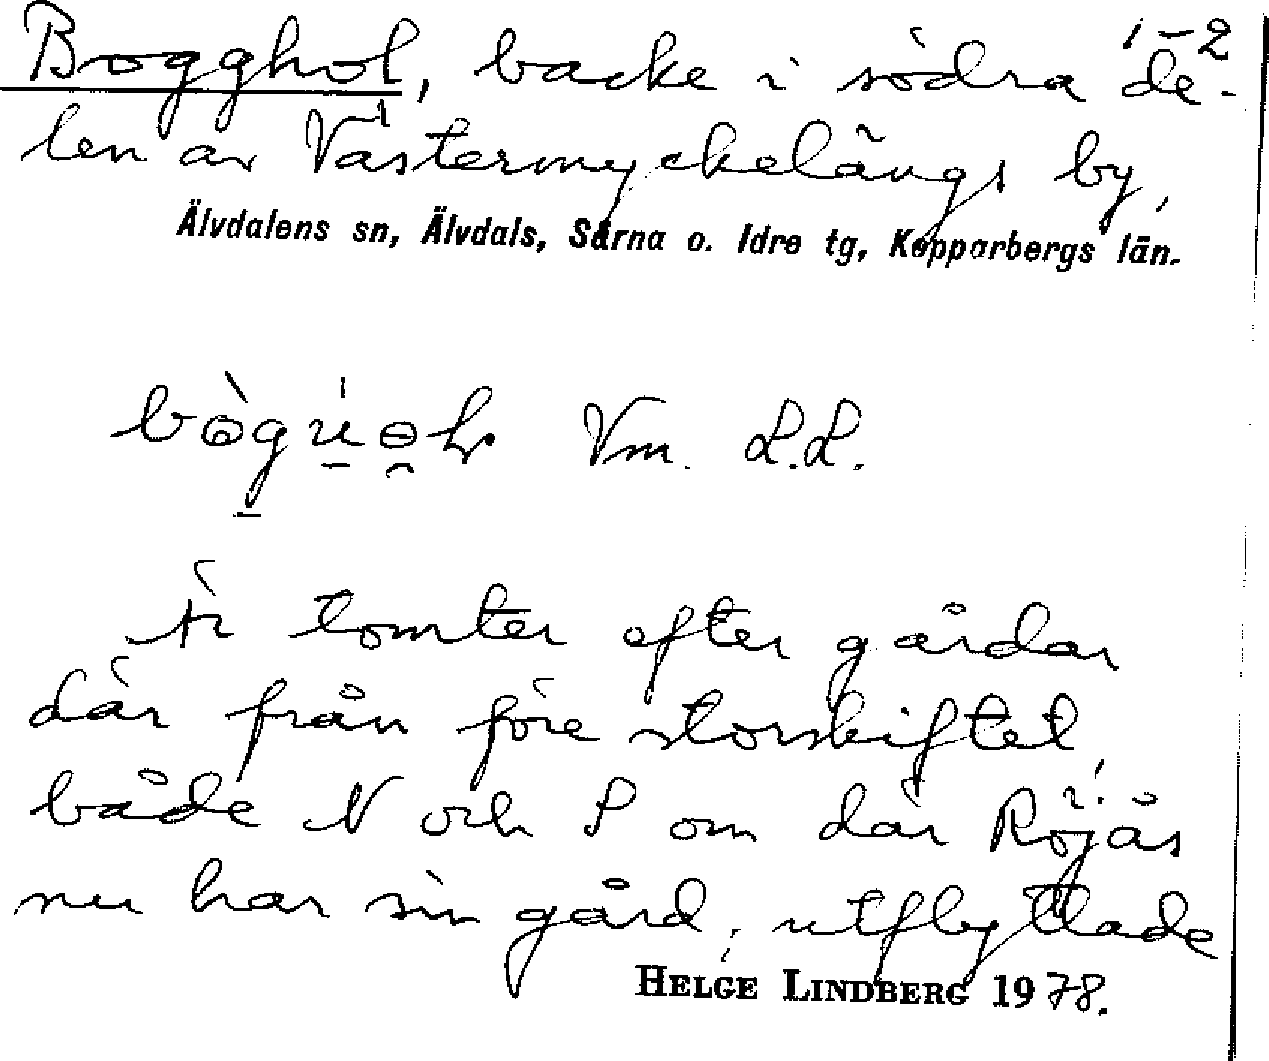 1-2
Bogghol, backe i södra de-
len av Västermyckelängs by,
Älvdalens sn, Älvdals, Särna o. Idre tg, Kopparbergs län.
Vm. L.L.
Är tomter efter gårdar
där från före storskiftet,
både N och S om där Röjås
nu har sin gård, utflyttade
HELGE LINDBERG 1978.